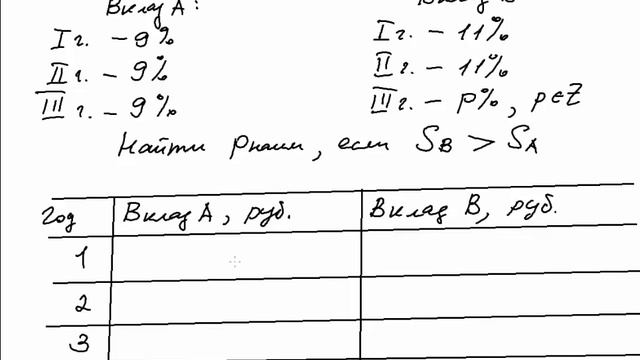 Вклад А:
I г. – 9%	I г. – 11%
II г. – 9%	II г. – 11%
III г. – 9%	III г. – p%, p∈Z
Найти p наим, если S_B > S_A
Год	Вклад А, руб.	Вклад В, руб.
1
2
3